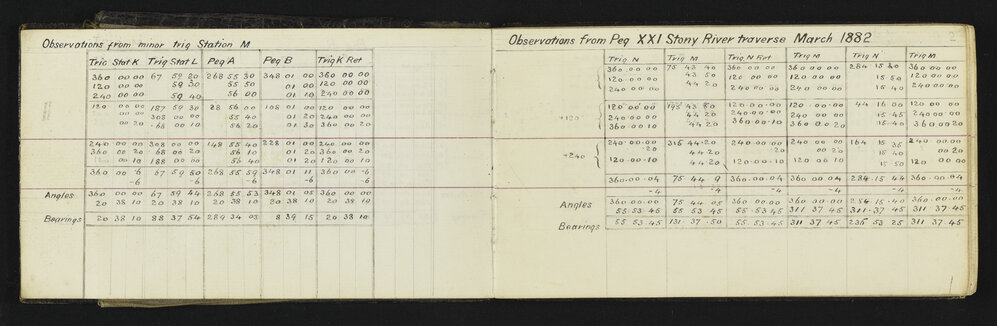 Observations from minor trig Station M
Trig Stat K Trig Stat L Peg A Peg B Trig K Ret
360 00 00 67 59 20 268 55 30 348 01 00 360 00 00
120 00 00 59 30 55 50 01 00 120 00 00
240 00 00 59 40 56 00 01 10 240 00 00
120 00 00 187 59 30 28 56 00 108 01 00 120 00 00
00 00 308 00 00 55 40 01 20 240 00 00
00 20 68 00 10 56 20 01 30 360 00 20
240 00 00 308 00 00 148 55 40 228 01 00 240 00 00
360 00 20 68 00 20 56 10 01 20 360 00 20
120 00 10 188 00 00 56 40 01 20 120 00 10
360 00 6 67 59 50 268 55 59 348 01 11 360 00 6
-6 -6 -6 -6 -6
Angles 360 00 00 67 59 44 268 55 53 348 01 05 360 00 00
20 38 10 20 38 10 20 38 10 20 38 10 20 38 10
Bearings 20 38 10 88 37 54 289 34 03 8 39 15 20 38 10
Observations from Peg XXI Stony River traverse March 1882
2
Trig N Trig M Trig N Ret Trig M Trig N Trig M
360.00.00 75 43 40 360.00.00 360 00 00 284 15 30 360 00 00
120.00.00 43 50 120 00 00 120 00 00 15 50 120 00 00
240.00.00 44 20 240 00 00 240 00 00 15 40 240 00 00
+120 120.00.00 195 43 80 120.00.00 120..00.00 44 16 00 120 00 00
240.00.00 44 20 240.00.00 240 00 00 15.50 240 00 00
360.00.10 44 20 360.00.10 360 00 20 15-40 360 00 20
+240 240.00.00 315 44.20 240.00.00 240 00 00 164 15 35 240 00 00
.20 44.20 .20 360 00 20 15 40 00 20
120.00.10 44 20 120.00.10 120 00 10 15 50 120 00 00
360.00.04 75 44 9 360.00.04 360 00 04 284.15 44 360 00 04
-4 -4 -4 -4 -4
Angles 360 00.00 75 44 05 360 00.00 360 00 00 284 15.40 360 00.00
55 53.45 55 53 45 55.53.45 311 37 45 311.37.45 311 37.45
Bearings 55 53.45 131.37.50 55.53.45 311 37 45 235 53 25 311 37 45